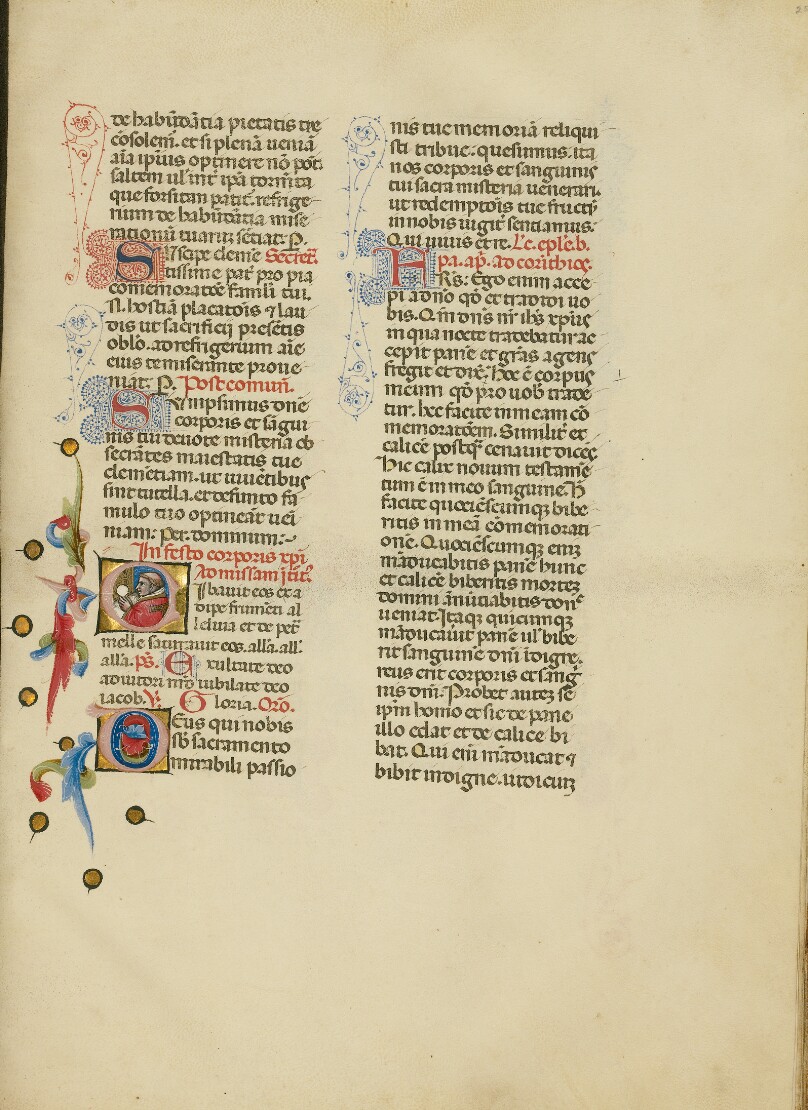 de habūdātia pietatis tue
cōsolem̄. et si plenā ueniā
aīa ipīus optinere nō pōt
saltem ul' int̄ ipā tormēta
que forsitan patit̄. refrige
rium de habūdātia mise
rationū tuarū sētiat. P.
Suscipe clemē Secret̄.
tissime pat̄ pro pia
comemoratōe famli tui.
N. hostiā placatōis ⁊ lau
dis ut sacrificij presētis
oblō. ad refrigerium aīe
eius te miserante proue
niat. P. Postcomun̄.
Sūmpsimus dn̄e
corporis et sāgui
nis tui deuote misteria ob
secrātes maiestatis tue
clemētiam. ut uiuētibus
sint tutella. et defūncto fa
mulo tuo optineāt uēi
niam: Per dominum:
In festo corporis xp̄i
Ad missam ītit̄.
Cibauit eos ex a
dipe frumēti al
leluia et de pet̄
melle saturauit eos. all'a. all'
all'a. ps̄. Exultate deo
adiutori nr̄o iubilate deo
iacob. V. Gloria. Oro.
Deus qui nobis
sb̄ sacramento
mirabili passio
nis tue memoriā reliqui
sti tribue. quesumus. ita
nos corporis et sanguinis
tui sacra misteria uenerari.
ut redemptōis tue fructū
in nobis iugit̄ sentiamus.
Qui uiuis et re. Lc̄. eple. b.
pa. ap̄. ad corithios.
Fr̄s: Ego enim acce
pi a dn̄o qd̄ et tradidi uo
bis. Qm̄ dn̄s nr̄ ih̄s xp̄us
in qua nocte tradebatur ac
cepit panē et grās agens
fregit et dix̄. Hoc ē corpus
meum qd̄ pro uob̄ trade
tur. hoc facite in meam cō
memoratōem. Similit̄ et
calicē postq̄ cenauit dicēs
Hic calix nouum testamē
tum ē in meo sanguine. H̄
facite quociēscumq̄ bibe
ritis in meā cōmemorati
onē. Quociēscumq̄ enī
māducabitis panē hunc
et calicē bibentis mortē
domini ānūtiabitis donec
ueniat. Itaq̄ quicumq̄
māducauit panē ul' bibe
rit sanguinē dn̄i īdigne.
reus erit corporis et sāg
nis dn̄i. Probet autē se
ip̄m homo et sic de pane
illo edat et de calice bi
bat. Qui enī māducat ⁊
bibit indigne. iudiciū